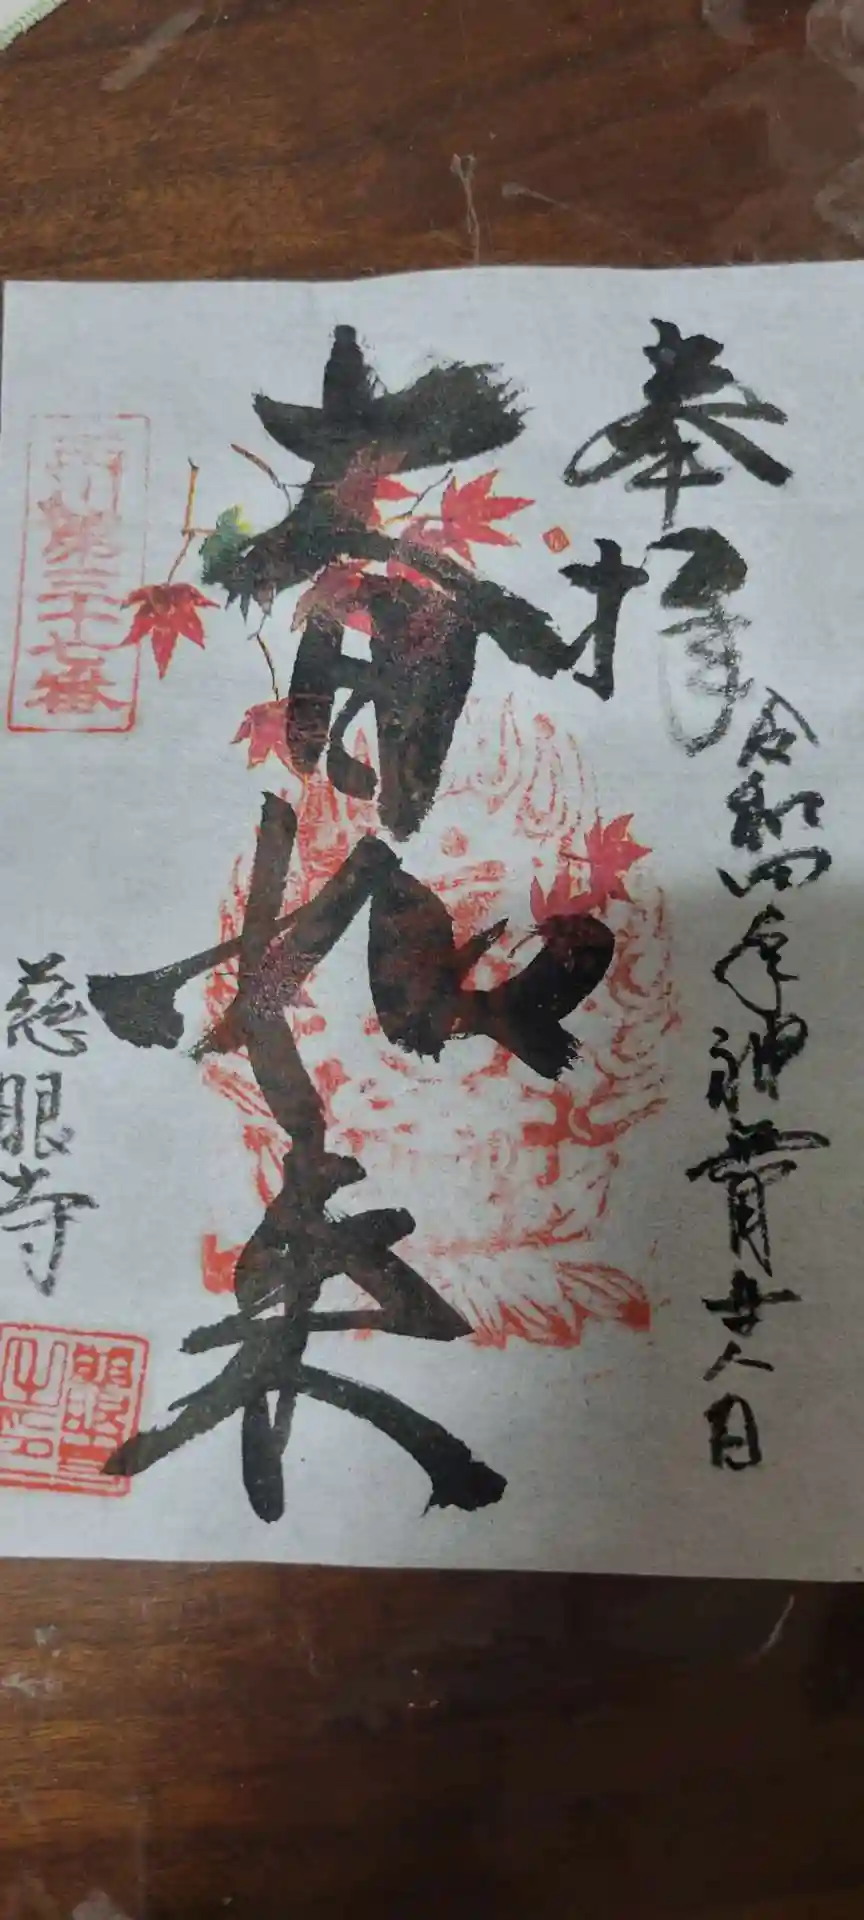 奉拝
令和四年神無月廿八日
春如来
玉川第三十七番
慈眼寺